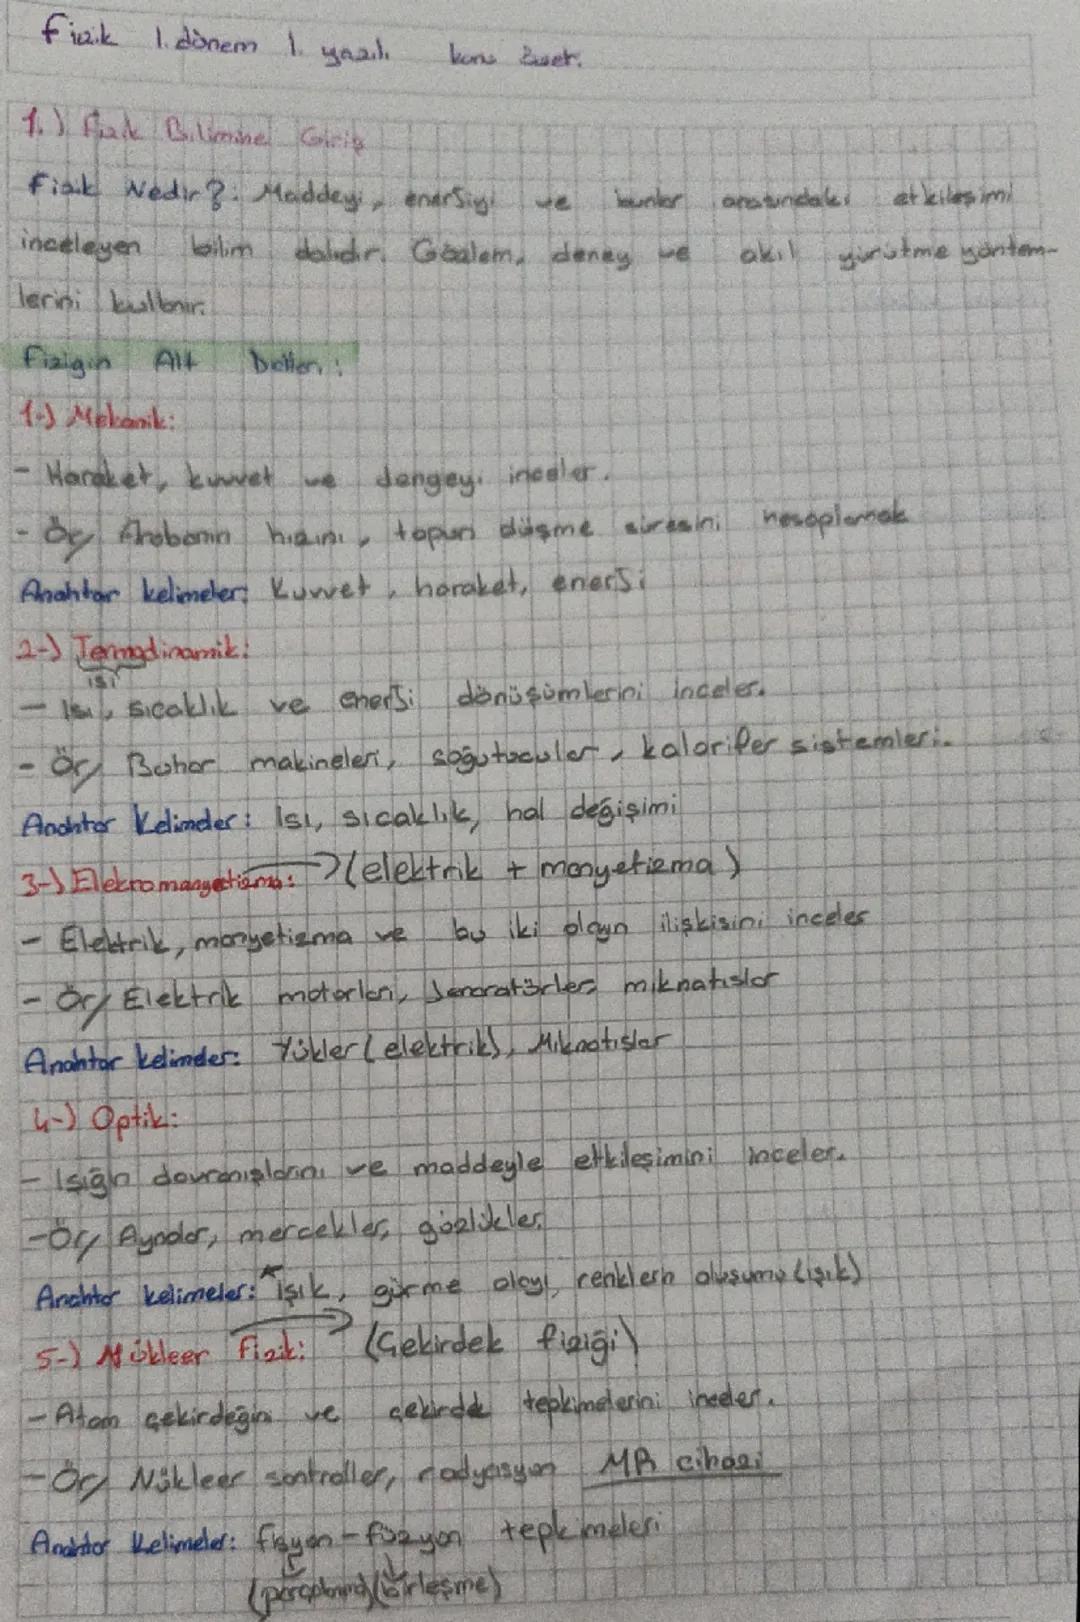 Fizik 1. dönem 1. yazılı konu özet.
1.) Fizik Bilimine Giriş
Fizik Nedir?: Maddeyi, enerjiyi ve bunlar arasındaki etkileşimi
inceleyen bilim dalıdır. Gözlem, deney ve akıl yürütme yöntem-
lerini kullanır.
Fiziğin Alt Dalları:
1-) Mekanik:
- Haraket, kuvvet ve dengeyi inceler.
- Ör/ Arabanın hızını, topun düşme süresini hesaplamak
Anahtar kelimeler: Kuvvet, haraket, enerji
2-) Termodinamik:
ısı
- Isı, sıcaklık ve enerji dönüşümlerini inceler.
- Ör/ Buhar makineleri, soğutucular, kalorifer sistemleri.
Anahtar Kelimeler: Isı, sıcaklık, hal değişimi
3-) Elekromanyetizma: →(elektrik + manyetizma)
- Elektrik, manyetizma ve bu iki olayın ilişkisini inceler
- Ör/ Elektrik motorları, Jeneratörler, mıknatıslar
Anahtar kelimeler: Yükler (elektrik), Mıknatıslar
4-) Optik:
- Işığın davranışlarını ve maddeyle etkileşimini inceler.
- Ör/ Aynalar, mercekler, gözlükler.
Anahtar kelimeler: *Işık, görme olayı, renklerin oluşumu (ışık)
5-) Nükleer Fizik: → (Çekirdek fiziği)
- Atom çekirdeğini ve çekirdek tepkimelerini inceler.
- Ör/ Nükleer santraller, radyasyon MR cihazı
Anahtar Kelimeler: fisyon - füzyon tepkimeleri
(parçalanma) (birleşme)